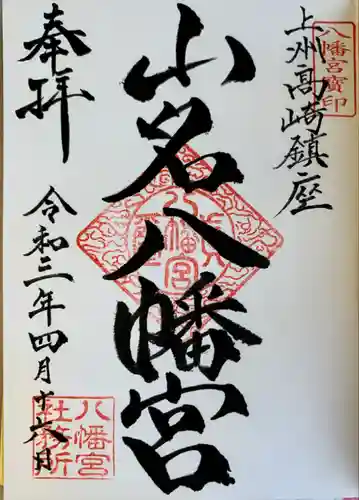 上州高崎鎮座
八幡宮寶印
山名八幡宮
八幡宮
奉拝
令和三年四月十六日
八幡宮
社務所